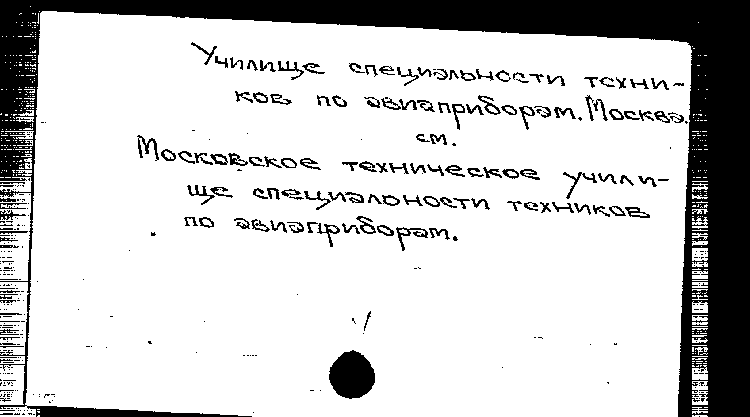 Училище специальности техни-
ков по авиаприборам. Москва.
см.
Московское техническое учили-
ще специальности техников
по авиаприборам.